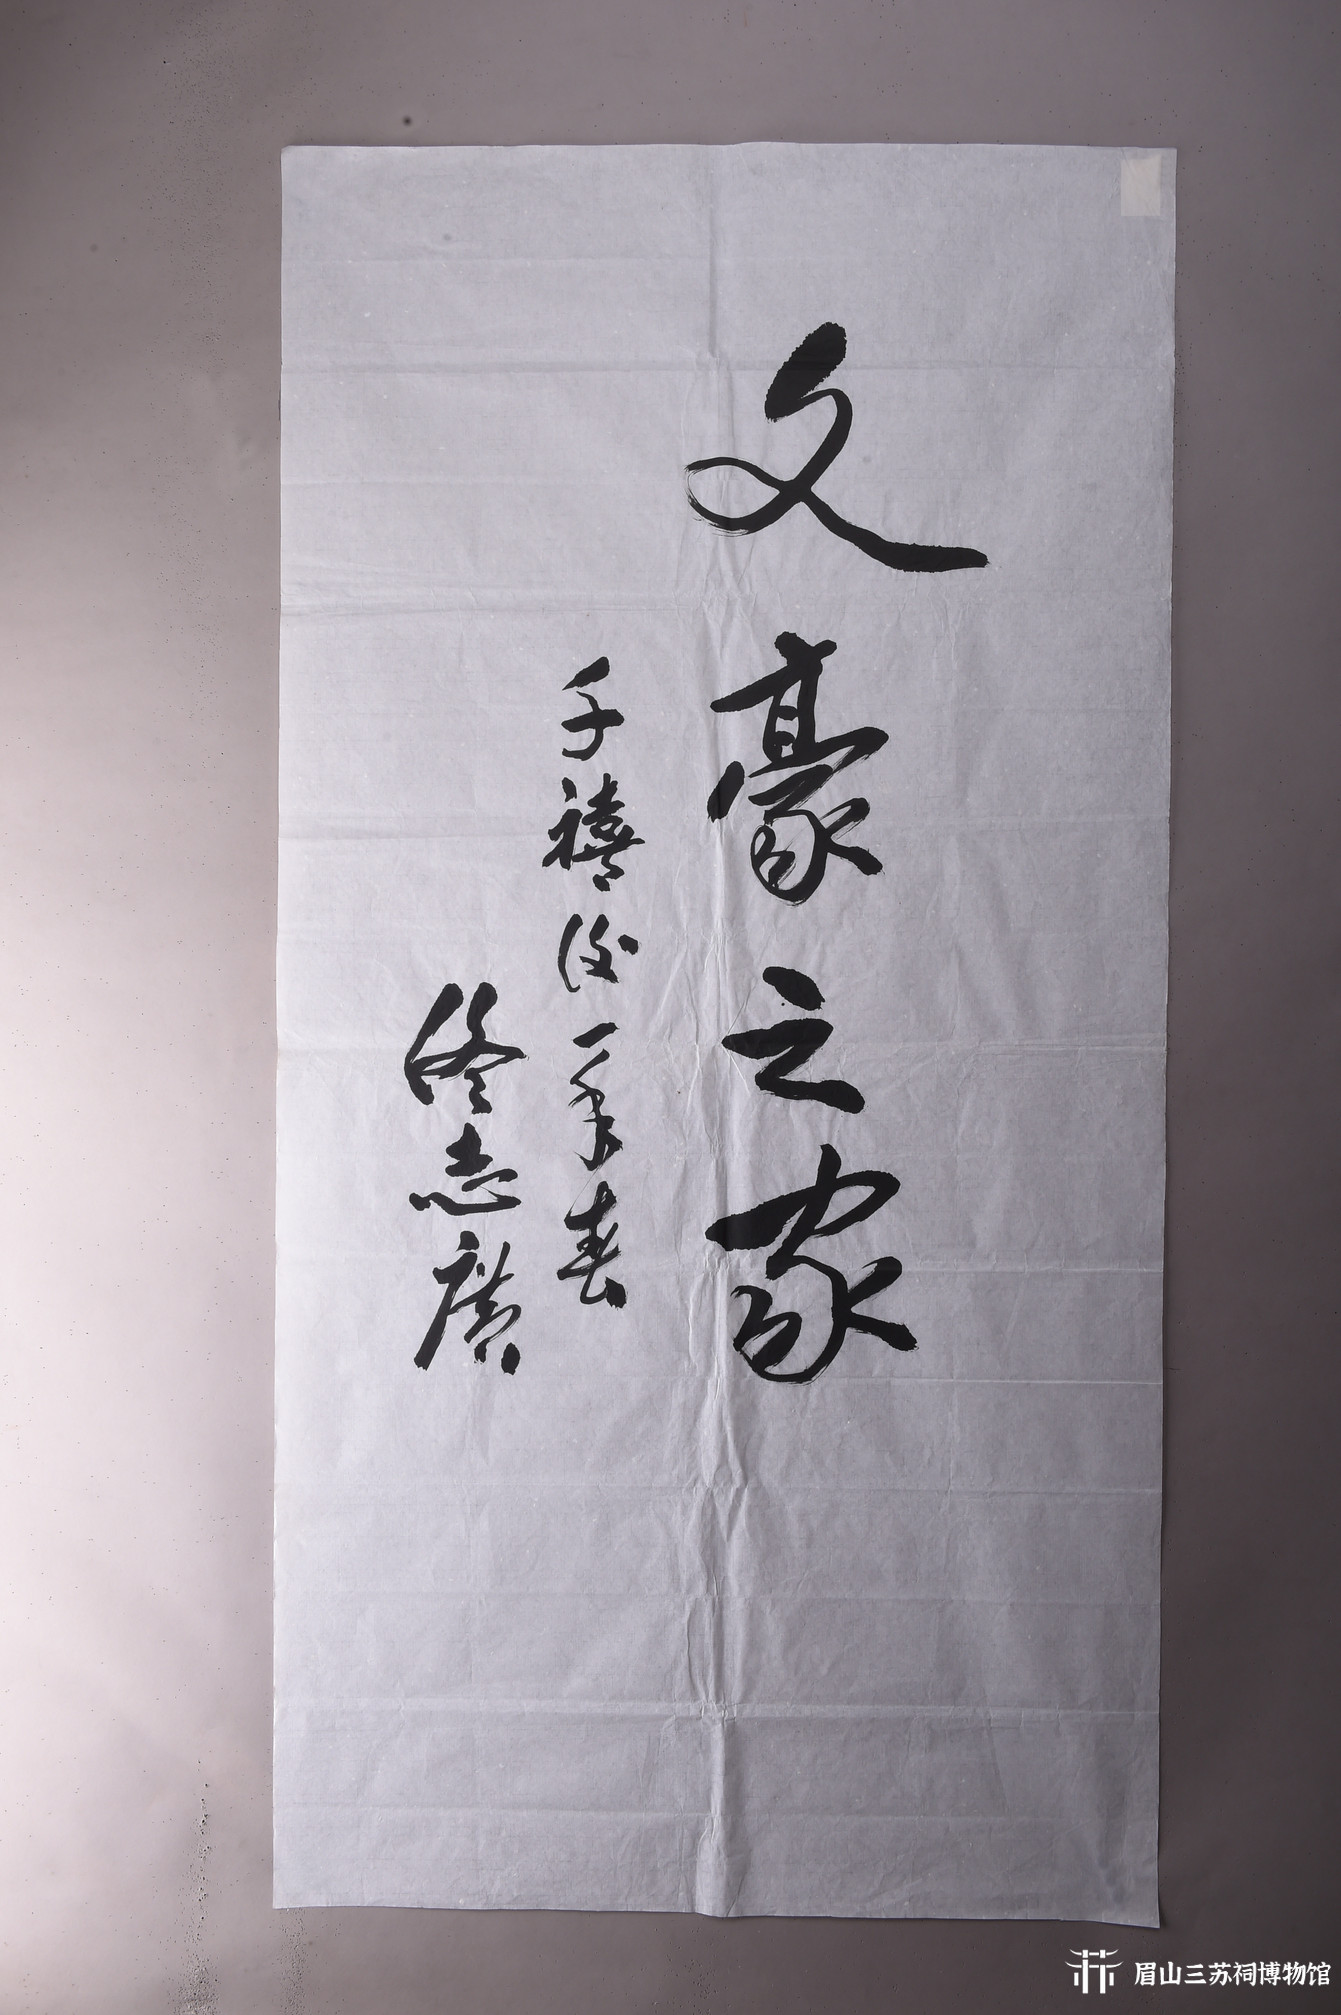 文豪之家
千禧後一年春
佟志廣
眉山三苏祠博物馆